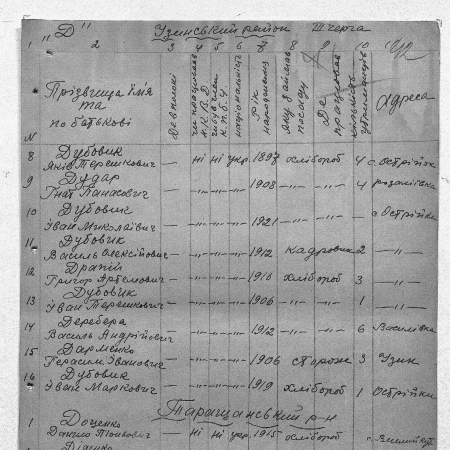 "Д" Узинський район III черга
1 2 3 4 5 6 7 8 9 10
N Прізвище ім'я та по батькові Де в полоні чи працював Н.К.В.Д. національність Рік народження яку займав посаду Де працював кількість Адреса
8 Дубовик Яків Терешкович — ні ні укр. 1897 хлібороб 4 с. Острійки
9 Дудар Гнат Панасович — -"- -"- -"- 1908 -"- -"- 4
10 Дубовик Іван Миколайвич — -"- -"- -"- 1921 -"- -"- с Острійки
11 Дубовик Василь Олексійович — -"- -"- -"- 1912 кадровик 2 -"-
12 Драпій Григор Артемович — -"- -"- -"- 1910 хлібороб 3 -"-
13 Дубовик Іван Терешкович — -"- -"- -"- 1906 -"- -"- 1 -"-
14 Деребера Василь Андрійович — -"- -"- -"- 1912 -"- -"- 6 Василівка
15 Дарменко Герасим Іванович — -"- -"- -"- 1906 сторож 3 Узин
16 Дубовик Іван Маркович — -"- -"- -"- 1919 хлібороб 1 Острійки
Таращанський р-н
1 Доценко Данило — ні ні укр. 1915 хлібороб